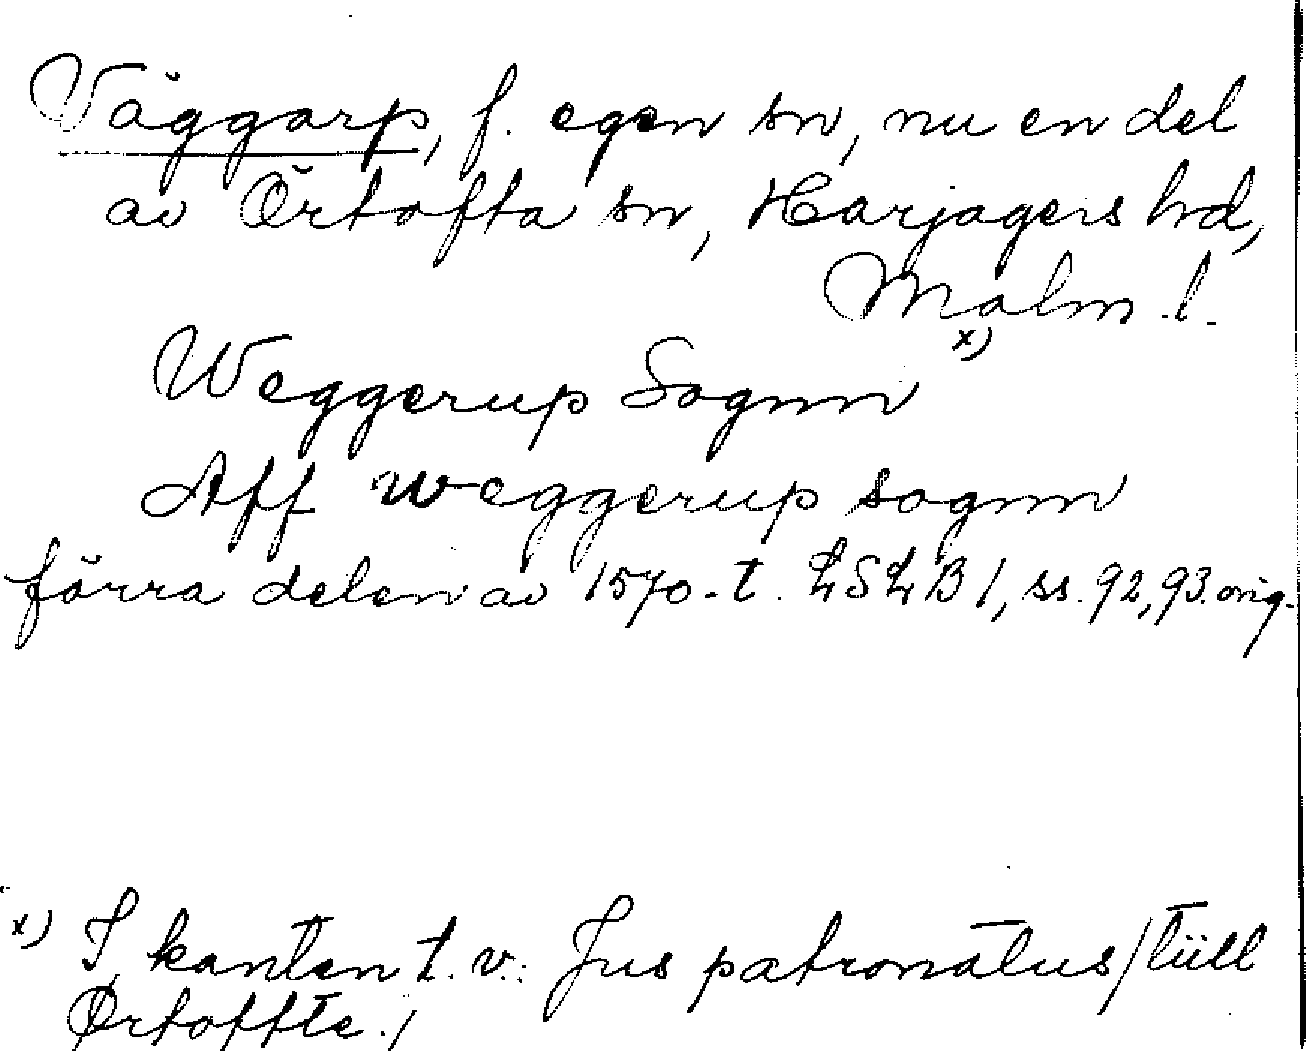 Väggarp, f. egen sn, nu en del
av Örtofta sn, Harjagers hd,
Malm. l.
Weggerup Sognn x)
Aff weggerup sognn
förra delen av 1570-t. LSLB 1, ss. 92, 93. orig.
x) I kanten t. v.: Jus patronatus / tüll
Ørtoffte. /